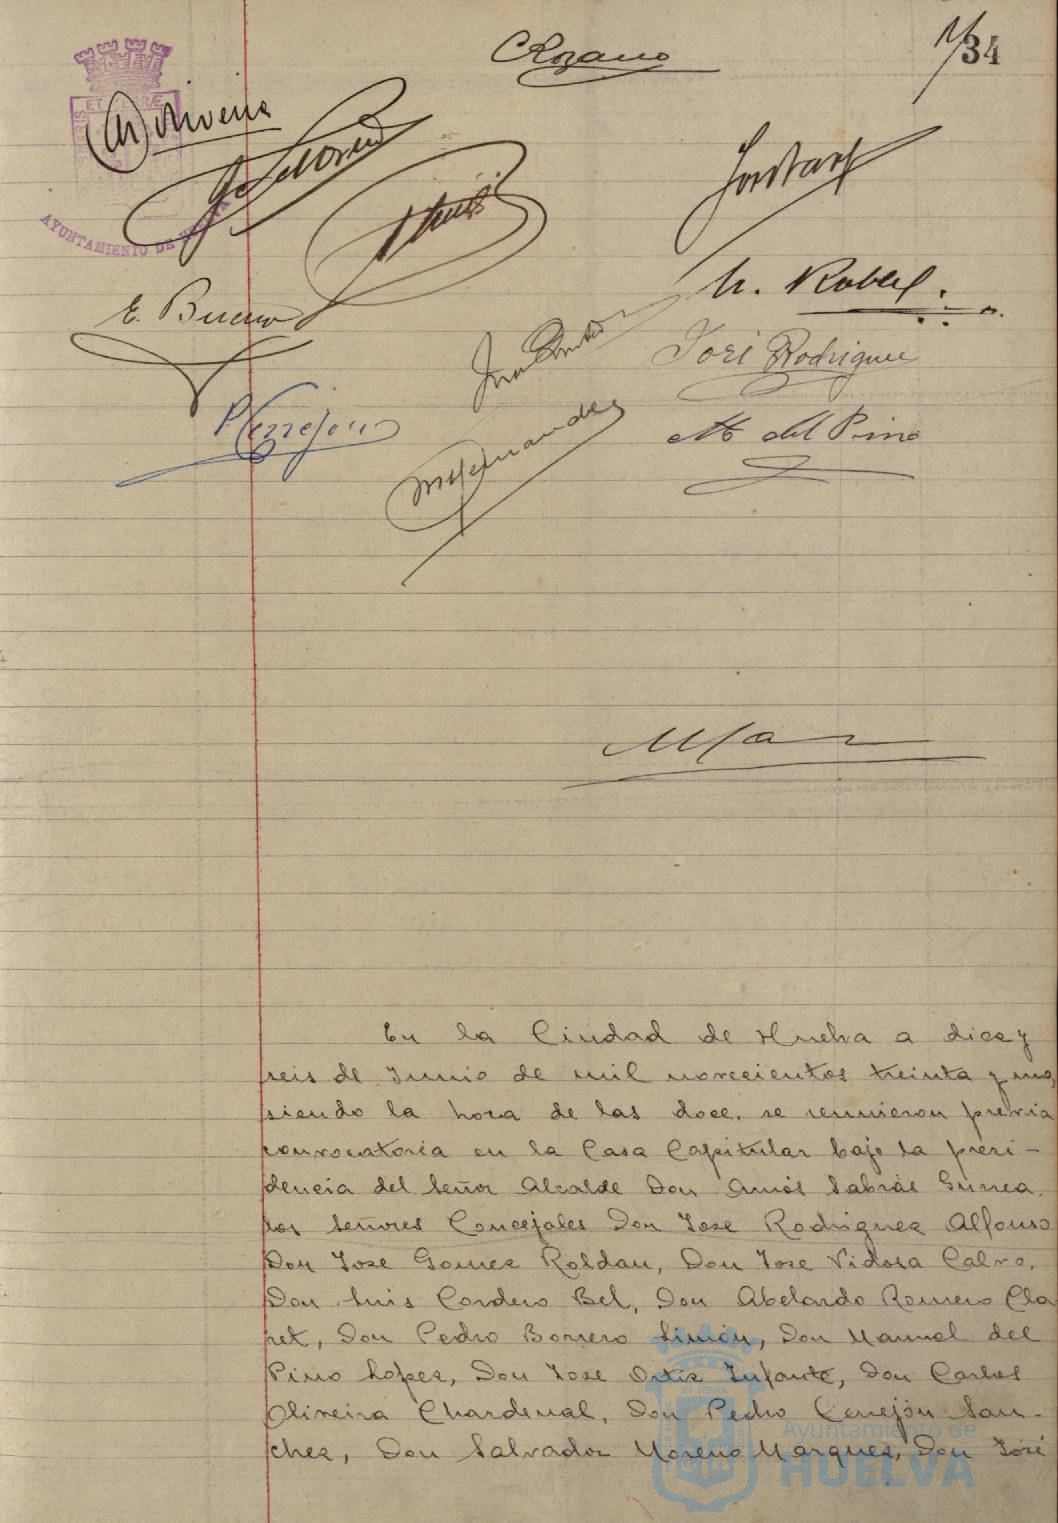 C Lozano
34
Oliveira
AYUNTAMIENTO DE
E. Bueno
José Rodriguez
P Cerrejon
M Fernandez
M del Pino
En la Ciudad de Huelva a diez y
seis de Junio de mil novecientos treinta y uno,
siendo la hora de las doce, se reunieron previa
convocatoria en la Casa Capitular bajo la presi-
dencia del Señor Alcalde Don Amós Sabrás Gurrea,
los Señores Concejales Don Jose Rodriguez Alfonso
Don Jose Gomez Roldan, Don Jose Vidosa Calvo,
Don Luis Cordero Bel, Don Abelardo Romero Cla
ret, Don Pedro Borrero Limón, Don Manuel del
Pino Lopez, Don Jose Ortiz Infante, Don Carlos
Oliveira Chardenal, Don Pedro Cerrejón San-
chez, Don Salvador Moreno Marquez, Don José
Ayuntamiento de
HUELVA